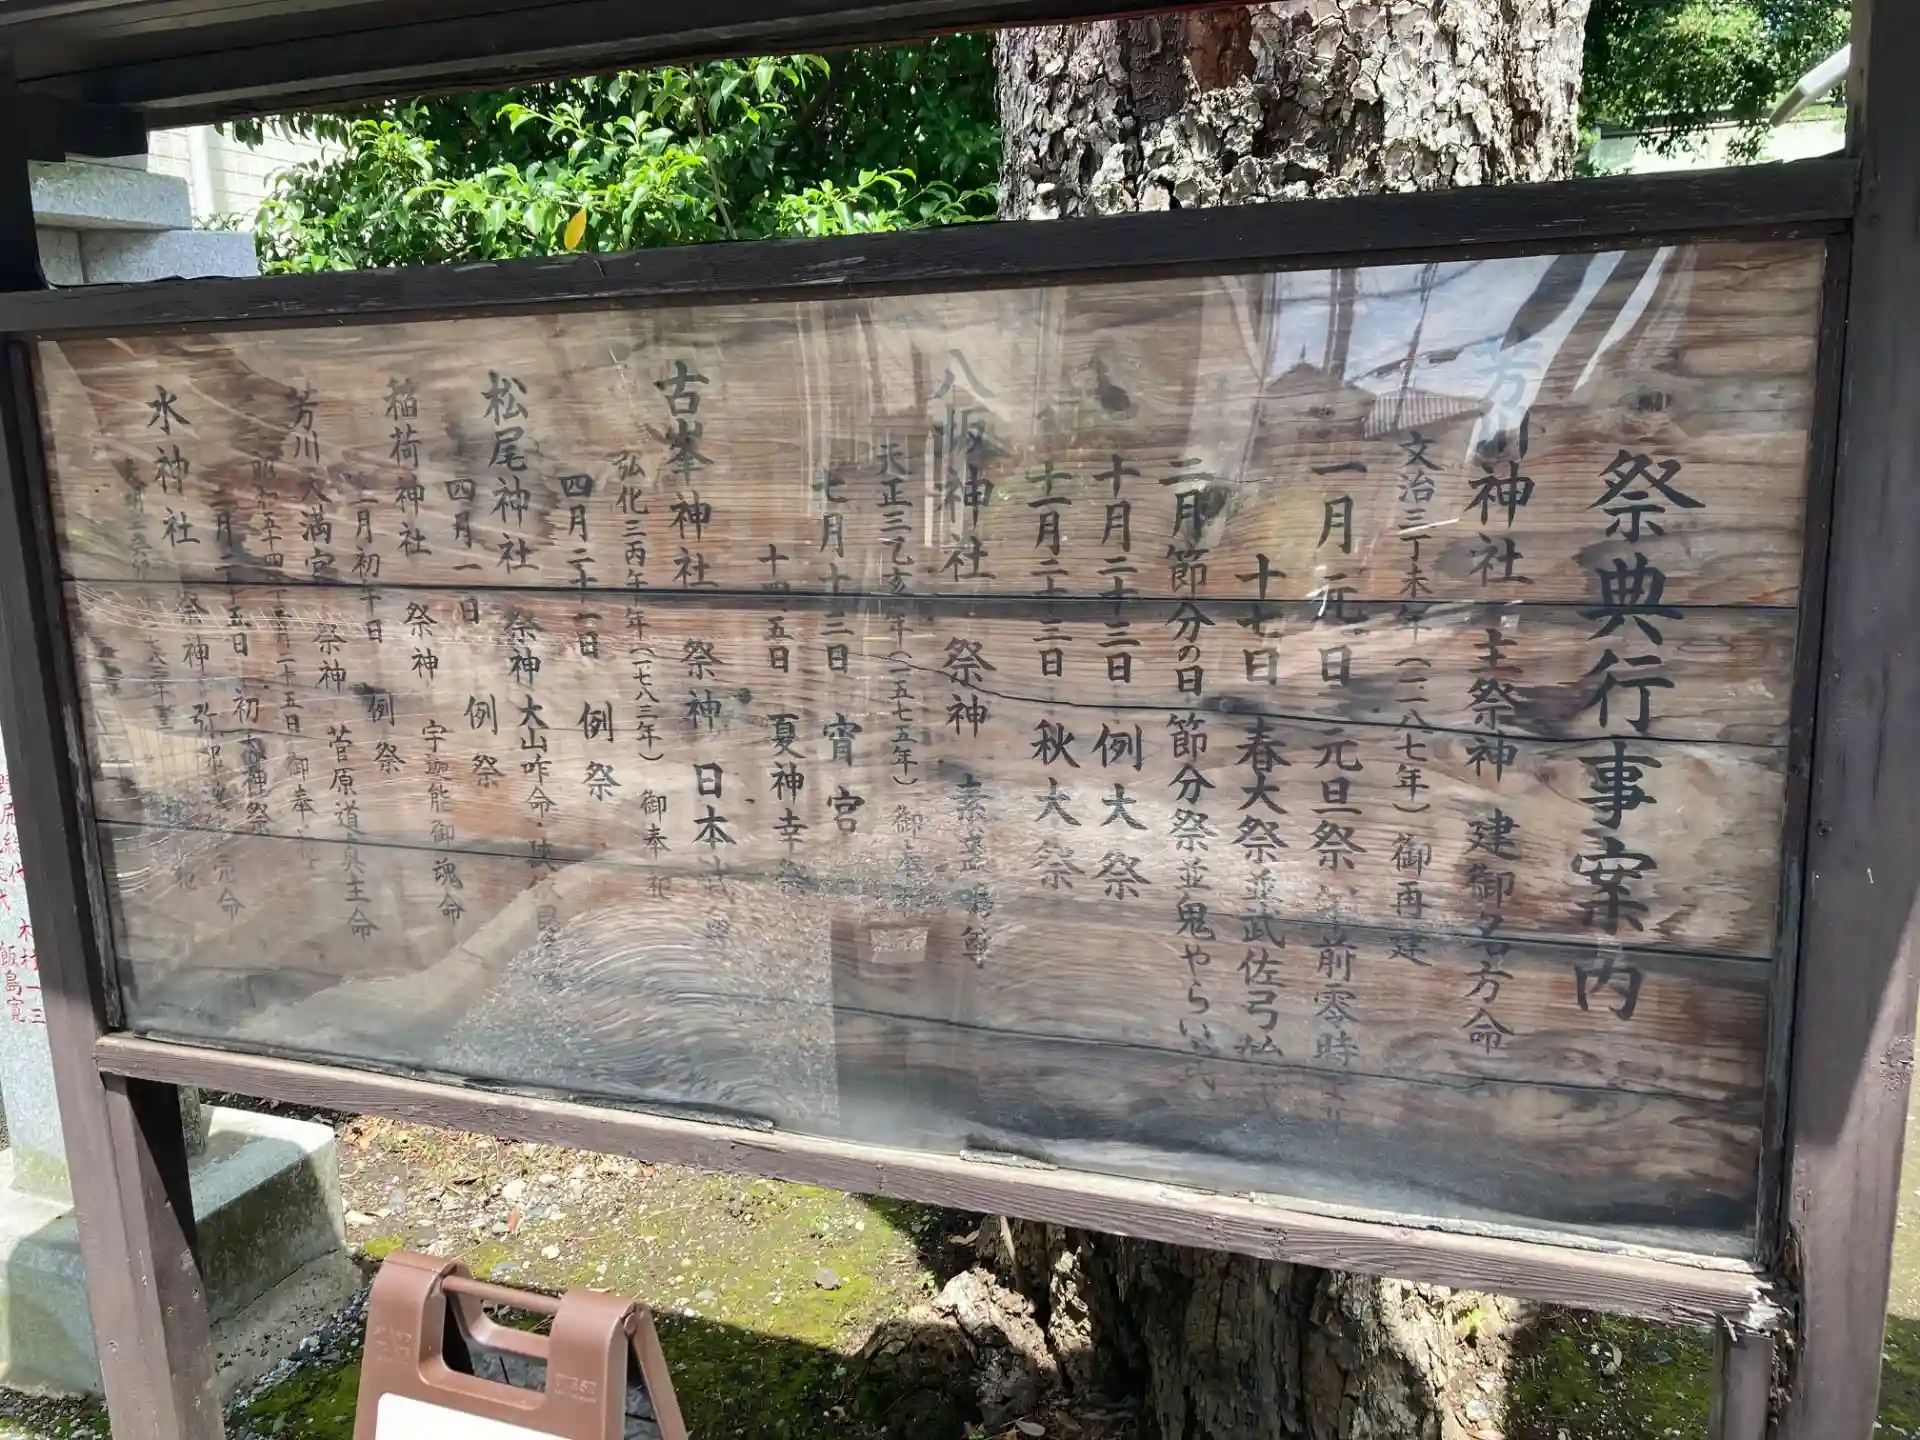 祭典行事案内
芳川神社 主祭神 建御名方命
文治三丁未年(一一八七年)御再建
一月元日 元旦祭 午前零時
十七日 春大祭並武佐弓祓式
二月節分の日 節分祭並鬼やらい式
十月二十三日 例大祭
十一月二十三日 秋大祭
八坂神社 祭神 素盞嗚尊
天正三乙亥年(一五七五年)御
七月十三日 宵宮
十四、五日 夏神幸祭
古峯神社 祭神 日本武尊
弘化三丙午年(一七八三年)御奉祀
四月二十一日 例祭
松尾神社 祭神 大山咋命・
四月一日 例祭
稲荷神社 祭神 宇迦能御魂命
二月初午日 例祭
芳川天満宮 祭神 菅原道真主命
昭和五十四年 月二十五日 御奉祀
月二十五日 初天神祭
水神社 祭神 弥都波能売命